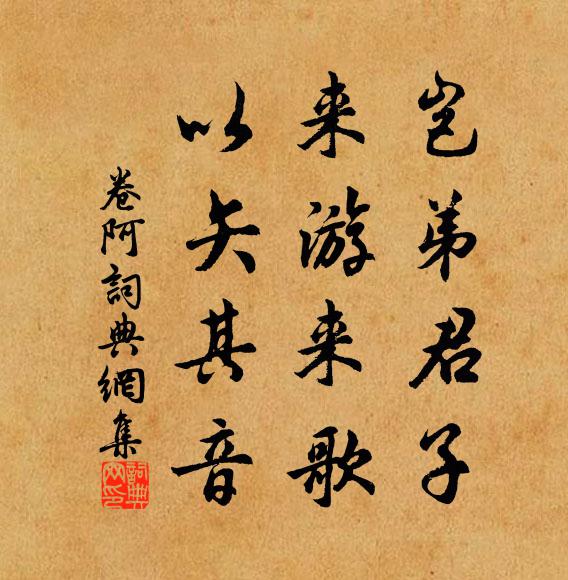 岂弟君子
来游来歌
以矢其音
卷阿詞典網集
詞典網印